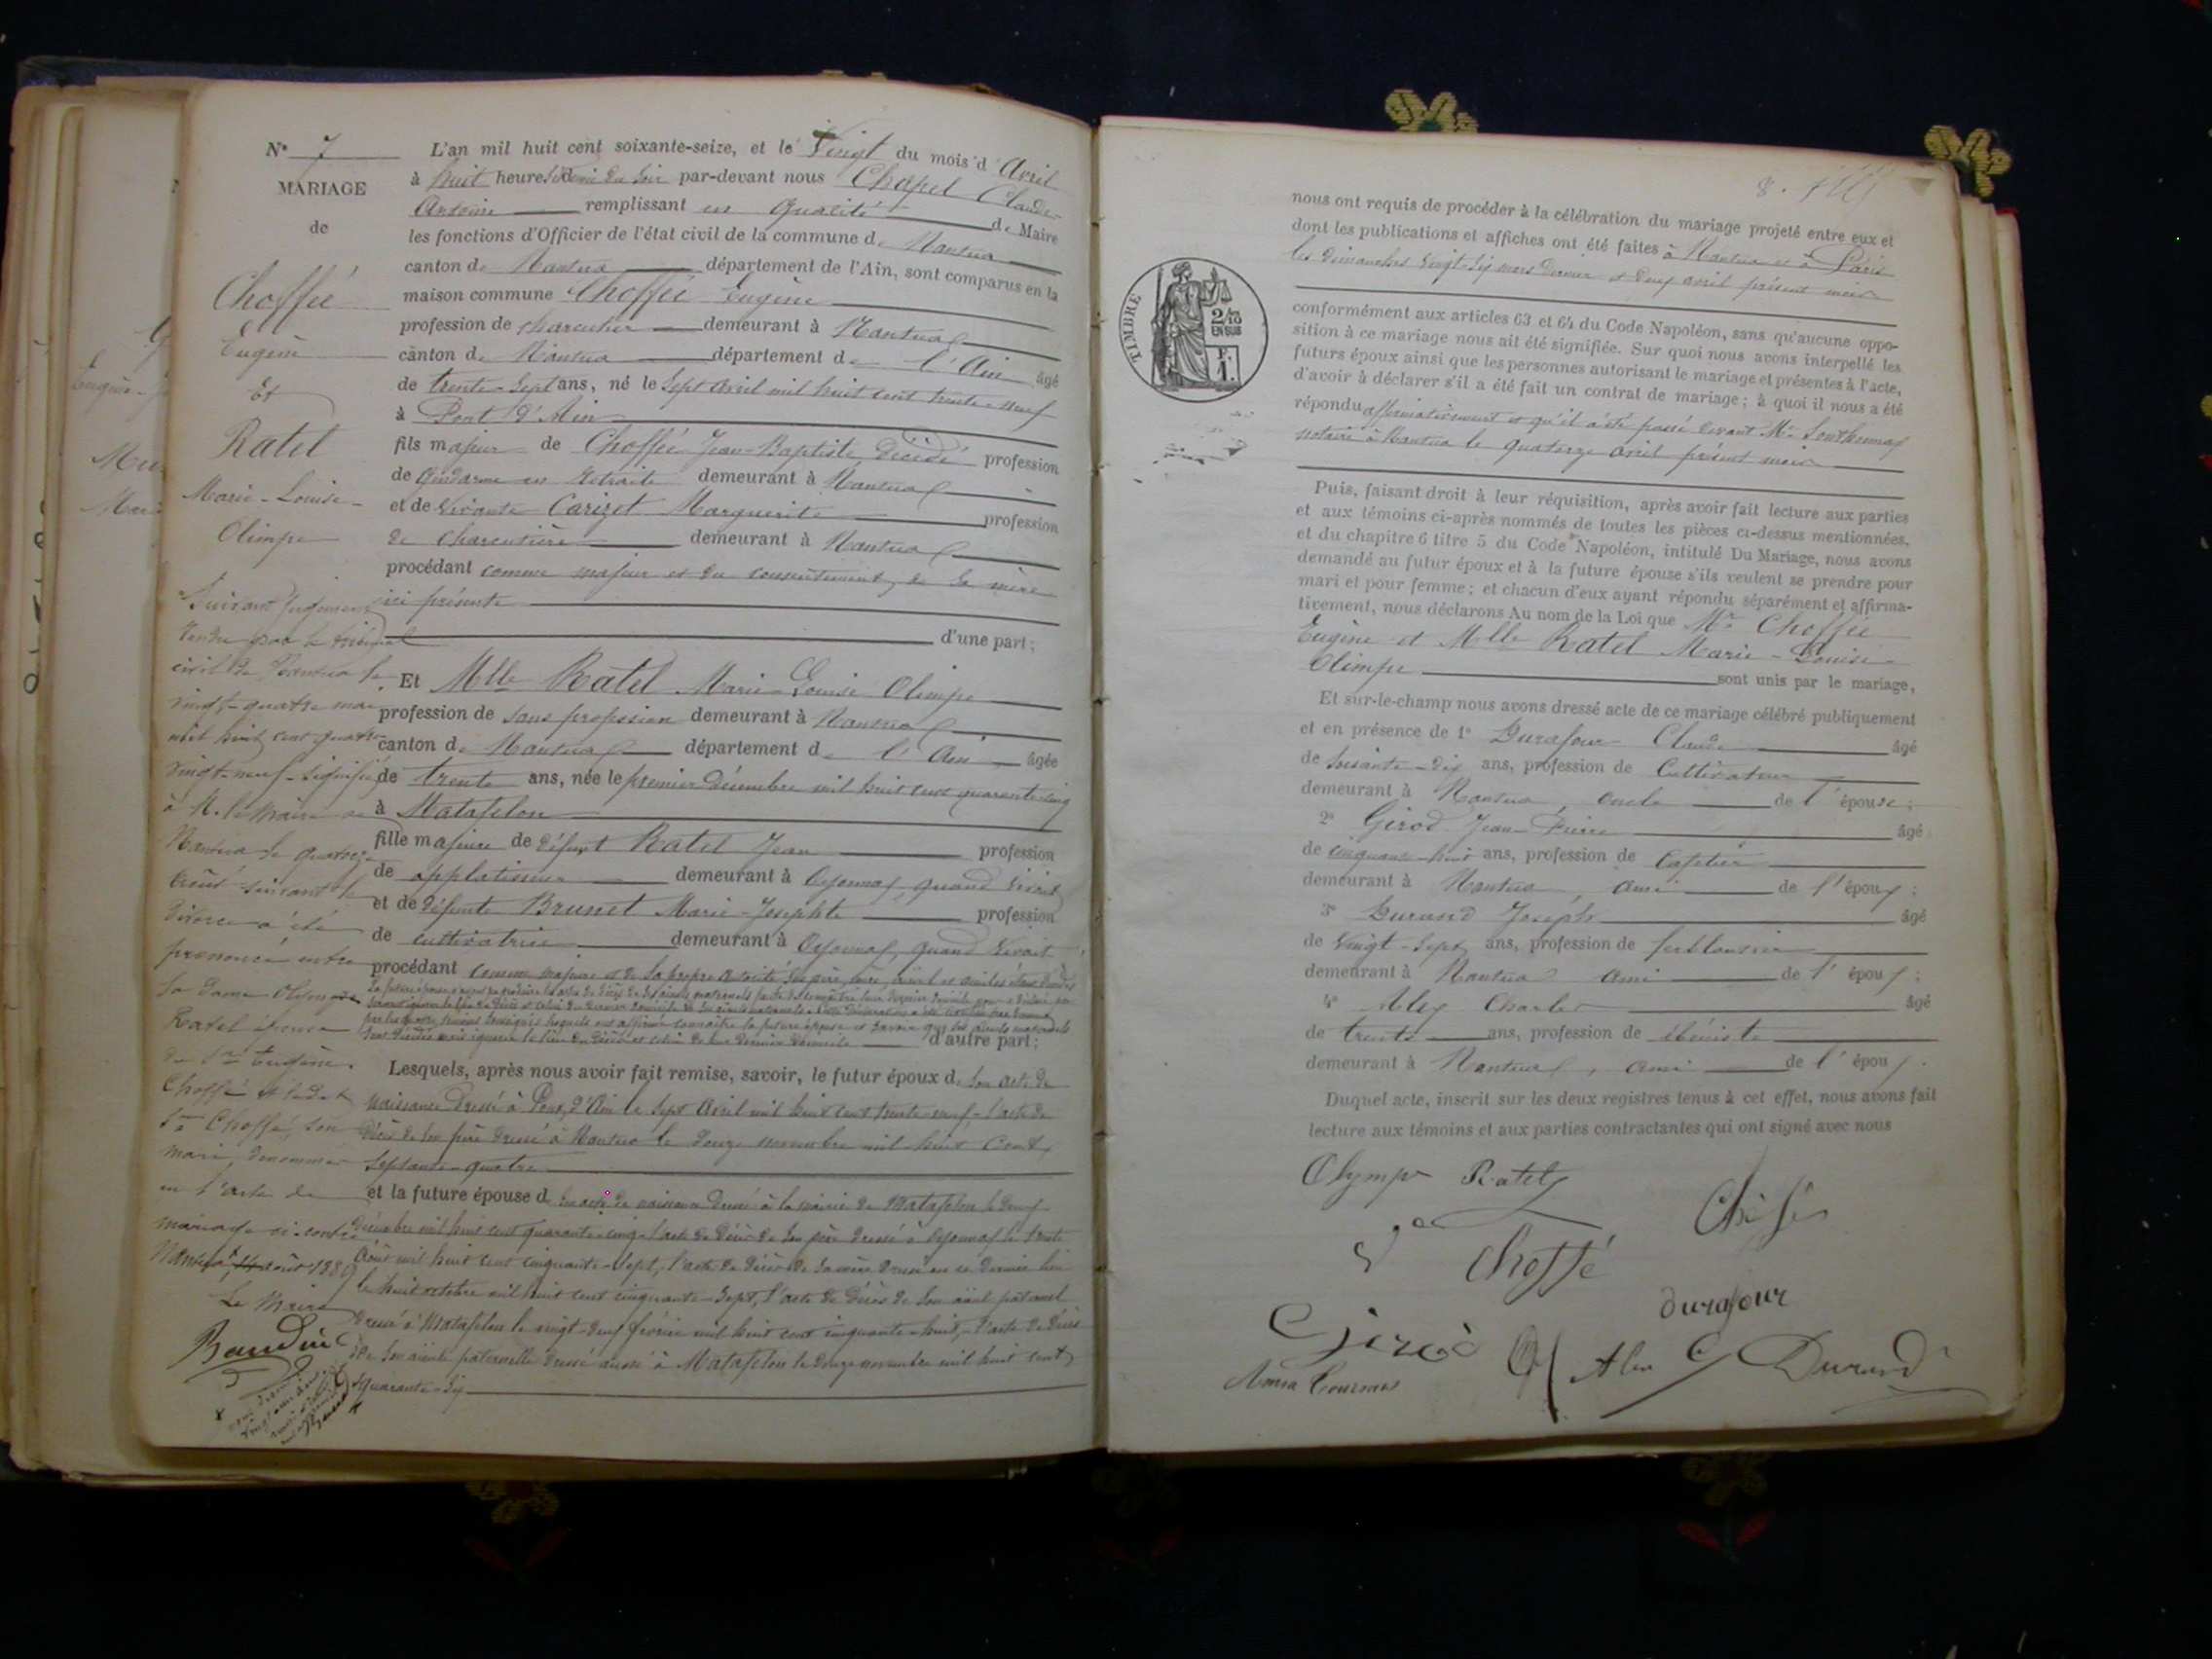 N° 7
MARIAGE
de
Choffé
Eugène
Et
Ratel
Marie-Louise-
Olimpe
Suivant Jugement
rendu par le tribunal
civil de Nantua le
vingt-quatre mai
mil huit cent quatre
vingt-neuf signifié
à M. le Maire de
Nantua le quatorze
août suivant le
divorce a été
prononcé entre
la dame Olympe
Ratel épouse
du Sr Eugène
Choffé et ledit
Sr Choffé, son
mari, dénommés
en l'acte de
mariage ci-contre
Nantua, août 1889
Le Maire
Baudin
L'an mil huit cent soixante-seize, et le Vingt du mois d'Avril
à huit heures et demi du soir par-devant nous Chapel Claude
Antoine remplissant en qualité de Maire
les fonctions d'Officier de l'état civil de la commune de Nantua
canton de Nantua département de l'Ain, sont comparus en la
maison commune Choffé Eugène
profession de charcutier demeurant à Nantua
canton de Nantua département de l'Ain âgé
de trente-sept ans, né le sept avril mil huit cent trente-neuf
à Pont d'Ain
fils majeur de Choffé Jean-Baptiste, décédé profession
de Gendarme en retraite demeurant à Nantua
et de vivante Carizet Marguerite profession
de charcutière demeurant à Nantua
procédant comme majeur et du consentement de sa mère
ici présente
d'une part;
Et Mlle Ratel Marie-Louise Olimpe
profession de sans profession demeurant à Nantua
canton de Nantua département de l'Ain âgée
de trente ans, née le premier Décembre mil huit cent quarante-cinq
à Matafelon
fille majeure de défunt Ratel Jean profession
de demeurant à Oyonnax, quand vivait
et de défunte Brunet Marie-Josephte profession
de cultivatrice demeurant à Oyonnax, quand vivait
procédant comme majeure et de sa propre autorité ses père, mère, aïeul et aïeules étant décédés
d'autre part;
Lesquels, après nous avoir fait remise, savoir, le futur époux de son acte de
naissance dressé à Pont d'Ain le sept avril mil huit cent trente neuf, l'acte de
décès de son père dressé à Nantua le douze novembre mil huit cent
septante-quatre
et la future épouse de son acte de naissance dressé à la mairie de Matafelon le deux
décembre mil huit cent quarante-cinq, l'acte de décès de son père dressé à Oyonnax le trente
août mil huit cent cinquante-sept, l'acte de décès de sa mère dressé en ce dernier lieu
le huit octobre mil huit cent cinquante-sept, l'acte de décès de son aïeul paternel
dressé à Matafelon le vingt-deux février mil huit cent cinquante-huit, l'acte de décès
de son aïeule paternelle dressé aussi à Matafelon le douze novembre mil huit cent
quarante-six
8.
nous ont requis de procéder à la célébration du mariage projeté entre eux et
dont les publications et affiches ont été faites à Nantua et à Paris
les dimanches vingt-six mars dernier et deux avril présent mois
TIMBRE
2/10
EN SUS
F.
1.
conformément aux articles 63 et 64 du Code Napoléon, sans qu'aucune oppo-
sition à ce mariage nous ait été signifiée. Sur quoi nous avons interpellé les
futurs époux ainsi que les personnes autorisant le mariage et présentes à l'acte,
d'avoir à déclarer s'il a été fait un contrat de mariage; à quoi il nous a été
répondu affirmativement et qu'il a été passé devant Me Southonnax
notaire à Nantua le quatorze avril présent mois
Puis, faisant droit à leur réquisition, après avoir fait lecture aux parties
et aux témoins ci-après nommés de toutes les pièces ci-dessus mentionnées,
et du chapitre 6 titre 5 du Code Napoléon, intitulé Du Mariage, nous avons
demandé au futur époux et à la future épouse s'ils veulent se prendre pour
mari et pour femme; et chacun d'eux ayant répondu séparément et affirma-
tivement, nous déclarons Au nom de la Loi que Mr Choffé
Eugène et Mlle Ratel Marie-Louise-
Olimpe sont unis par le mariage,
Et sur-le-champ nous avons dressé acte de ce mariage célébré publiquement
et en présence de 1° Durafour Claude âgé
de soixante-dix ans, profession de Cultivateur
demeurant à Nantua, oncle de l'épouse;
2° Girod Jean-Pierre âgé
de cinquante-huit ans, profession de Cafetier
demeurant à Nantua, ami de l'époux;
3° Durand Joseph âgé
de vingt-sept ans, profession de ferblantier
demeurant à Nantua ami de l'époux;
4° Charles âgé
de trente ans, profession de ébéniste
demeurant à Nantua, ami de l'époux.
Duquel acte, inscrit sur les deux registres tenus à cet effet, nous avons fait
lecture aux témoins et aux parties contractantes qui ont signé avec nous
Olympe Ratel
Choffé
durafour
Girod
Durand